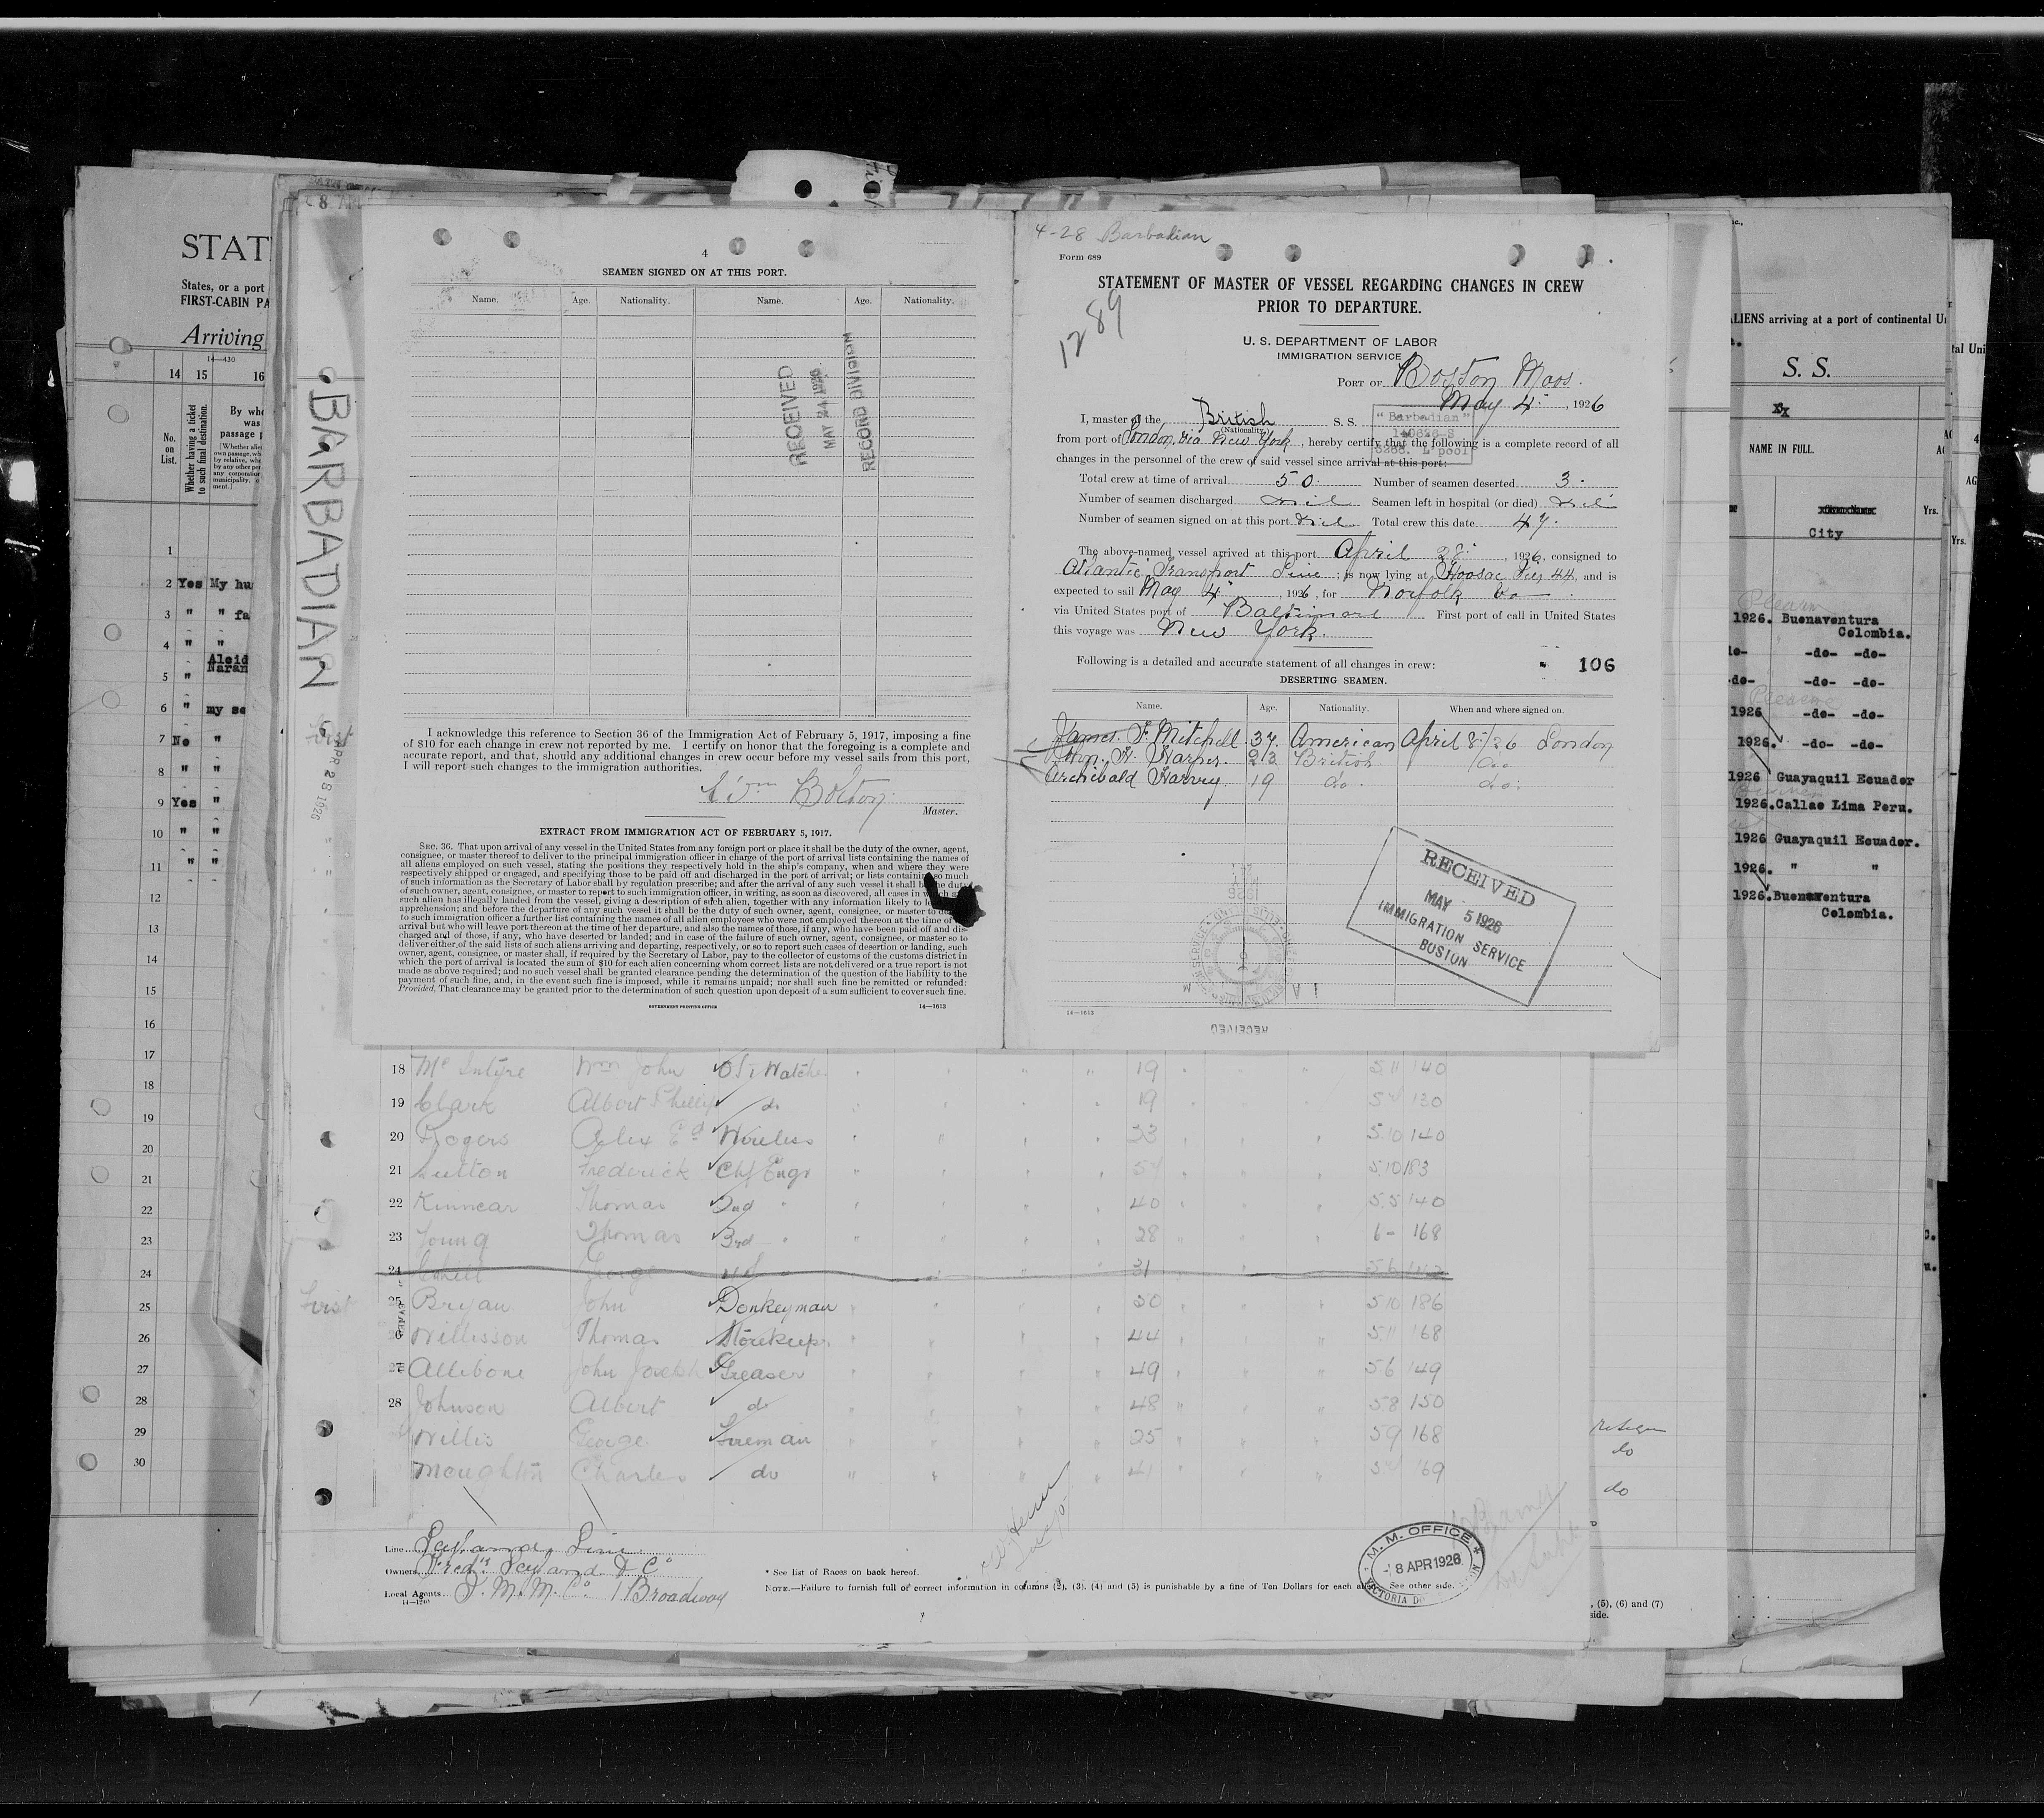 STAT
States, or a port
FIRST-CABIN PA
Arriving
14—430
14 15 16
No. on List.
Whether having a ticket to such final destination.
By who
was
passage p
1
2 Yes My hu
3 " " fa
4 " "
Aleid
Naran
5 "
6 " my se
7 No "
8 " "
9 Yes "
10 " "
11 " "
12
13
14
15
16
17
18
19
20
21
22
23
24
25
26
27
28
29
30
BARBADIAN
APR 28 1926
4
SEAMEN SIGNED ON AT THIS PORT.
Name. Age. Nationality. Name. Age. Nationality.
RECEIVED
MAY 24 1926
RECORD DIVISION
I acknowledge this reference to Section 36 of the Immigration Act of February 5, 1917, imposing a fine
of $10 for each change in crew not reported by me. I certify on honor that the foregoing is a complete and
accurate report, and that, should any additional changes in crew occur before my vessel sails from this port,
I will report such changes to the immigration authorities.
Wm Bolton
Master.
EXTRACT FROM IMMIGRATION ACT OF FEBRUARY 5, 1917.
SEC. 36. That upon arrival of any vessel in the United States from any foreign port or place it shall be the duty of the owner, agent,
consignee, or master thereof to deliver to the principal immigration officer in charge of the port of arrival lists containing the names of
all aliens employed on such vessel, stating the positions they respectively hold in the ship's company, when and where they were
respectively shipped or engaged, and specifying those to be paid off and discharged in the port of arrival; or lists containing so much
of such information as the Secretary of Labor shall by regulation prescribe; and after the arrival of any such vessel it shall be the duty
of such owner, agent, consignee, or master to report to such immigration officer, in writing, as soon as discovered, all cases in which any
such alien has illegally landed from the vessel, giving a description of such alien, together with any information likely to
apprehension; and before the departure of any such vessel it shall be the duty of such owner, agent, consignee, or master to
to such immigration officer a further list containing the names of all alien employees who were not employed thereon at the time of
arrival but who will leave port thereon at the time of her departure, and also the names of those, if any, who have been paid off and dis-
charged and of those, if any, who have deserted or landed; and in case of the failure of such owner, agent, consignee, or master so to
deliver either of the said lists of such aliens arriving and departing, respectively, or so to report such cases of desertion or landing, such
owner, agent, consignee, or master shall, if required by the Secretary of Labor, pay to the collector of customs of the customs district in
which the port of arrival is located the sum of $10 for each alien concerning whom correct lists are not delivered or a true report is not
made as above required; and no such vessel shall be granted clearance pending the determination of the question of the liability to the
payment of such fine, and, in the event such fine is imposed, while it remains unpaid; nor shall such fine be remitted or refunded:
Provided, That clearance may be granted prior to the determination of such question upon deposit of a sum sufficient to cover such fine.
GOVERNMENT PRINTING OFFICE 14—1613
4-28 Barbadian
Form 689
1289
STATEMENT OF MASTER OF VESSEL REGARDING CHANGES IN CREW
PRIOR TO DEPARTURE.
U. S. DEPARTMENT OF LABOR
IMMIGRATION SERVICE
PORT OF Boston Mass.
May 4, 1926
I, master of the British S. S. "Barbadian"
(Nationality.)
from port of London via New York, hereby certify that the following is a complete record of all
changes in the personnel of the crew of said vessel since arrival at this port:
Total crew at time of arrival 50. Number of seamen deserted 3.
Number of seamen discharged nil Seamen left in hospital (or died) nil
Number of seamen signed on at this port nil Total crew this date 47.
The above-named vessel arrived at this port April 28, 1926, consigned to
Atlantic Transport Line; is now lying at Hoosac Pier 44, and is
expected to sail May 4, 1926, for Norfolk Va
via United States port of Baltimore First port of call in United States
this voyage was New York.
Following is a detailed and accurate statement of all changes in crew: 106
DESERTING SEAMEN.
Name. Age. Nationality. When and where signed on.
James F. Mitchell 37. American April 8/26 London
John. H. Harper. 23 British do
Archibald Harvey. 19 do. do.
RECEIVED
MAY 5 1926
IMMIGRATION SERVICE
BOSTON
RECEIVED
14—1613
18 McIntyre Wm John 19 5 11 140
19 Clark Albert Phillip do 19 130
20 Rogers Alex Ed Wireless 33 5.10 140
21 Sutton Frederick Chf Engr 5.10 183
22 Kinnear Thomas 2nd " 40 5.5 140
23 Young Thomas 3rd " 28 6- 168
24 George 31 5 6
25 Bryan John Donkeyman 50 5 10 186
26 Willisson Thomas Storekeepr 44 5.11 168
27 Allibone John Joseph Greaser 49 5 6 149
28 Johnson Albert do 48 5 8 150
Willis George Fireman 25 5 9 168
Moughton Charles do 41 169
Line Leyland Line
Owners Fredk Leyland & Co
Local Agents I. M. M. Co 1 Broadway
14—1240
* See list of Races on back hereof.
NOTE.—Failure to furnish full or correct information in columns (2), (3), (4) and (5) is punishable by a fine of Ten Dollars for each
See other side.
M. M. OFFICE
8 APR 1926
do
do
, (5), (6) and (7)
side.
LIENS arriving at a port of continental Un
S. S.
XX
NAME IN FULL.
City
Yrs.
1926. Buenaventura
Colombia.
-do- -do-
-do- -do- -do-
1926 -do- -do-
1926. -do- -do-
1926 Guayaquil Ecuador
1926. Callao Lima Peru.
1926 Guayaquil Ecuador.
1926. " "
1926. Buenaventura
Colombia.
tal Uni
AG
Yrs.